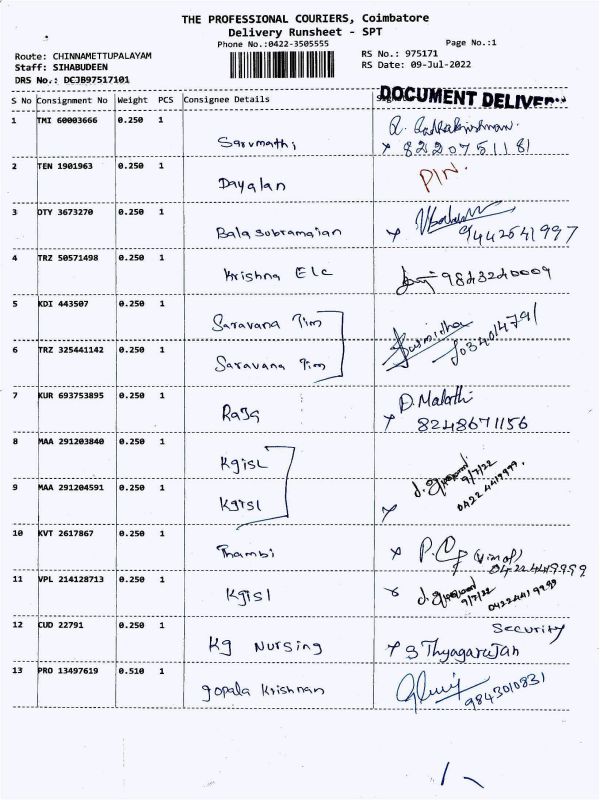 THE PROFESSIONAL COURIERS, Coimbatore
Delivery Runsheet - SPT
Phone No.:0422-3505555
Page No.:1
Route: CHINNAMETTUPALAYAM
RS No.: 975171
Staff: SIHABUDEEN
RS Date: 09-Jul-2022
DRS No.: DCJB97517101
DOCUMENT DELIVER
S No Consignment No Weight PCS Consignee Details
1 TMI 60003666 0.250 1
Sarumathi R. Radhakrishnan.
x 8220751181
2 TEN 1901963 0.250 1
Dayalan PIN.
3 DTY 3673270 0.250 1
Bala subramaian x 9442541997
4 TRZ 50571498 0.250 1
Krishna Elc 9843240009
5 KDI 443507 0.250 1
Saravana Tim
6 TRZ 325441142 0.250 1
Saravana Tim
7 KUR 693753895 0.250 1 D. Malathi
Raja x 8248671156
8 MAA 291203840 0.250 1
Kgisl 9/7/22
0422 4419999.
9 MAA 291204591 0.250 1
Kgisl x
10 KVT 2617867 0.250 1
Thambi x (vimal)
0422 4419999
11 VPL 214128713 0.250 1
Kgisl x 9/7/22
0422441 9999
12 CUD 22791 0.250 1 Security
Kg Nursing x S Thyagarajan
13 PRO 13497619 0.510 1
gopala Krishnan 9843010831